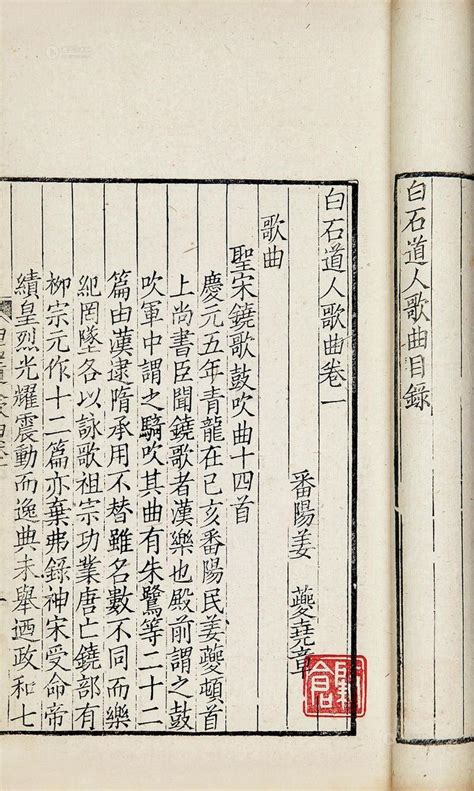 白石道人歌曲目錄
白石道人歌曲卷一
番陽姜 夔堯章
歌曲
聖宋鐃歌鼓吹曲十四首
慶元五年青龍在己亥番陽民姜夔頓首
上尚書臣聞鐃歌者漢樂也殿前謂之鼓
吹軍中謂之騎吹其曲有朱鷺等二十二
篇由漢逮隋承用不替雖名數不同而樂
紀罔墜各以詠歌祖宗功業唐亡鐃部有
柳宗元作十二篇亦棄弗錄神宋受命帝
績皇烈光耀震動而逸典未舉迺政和七